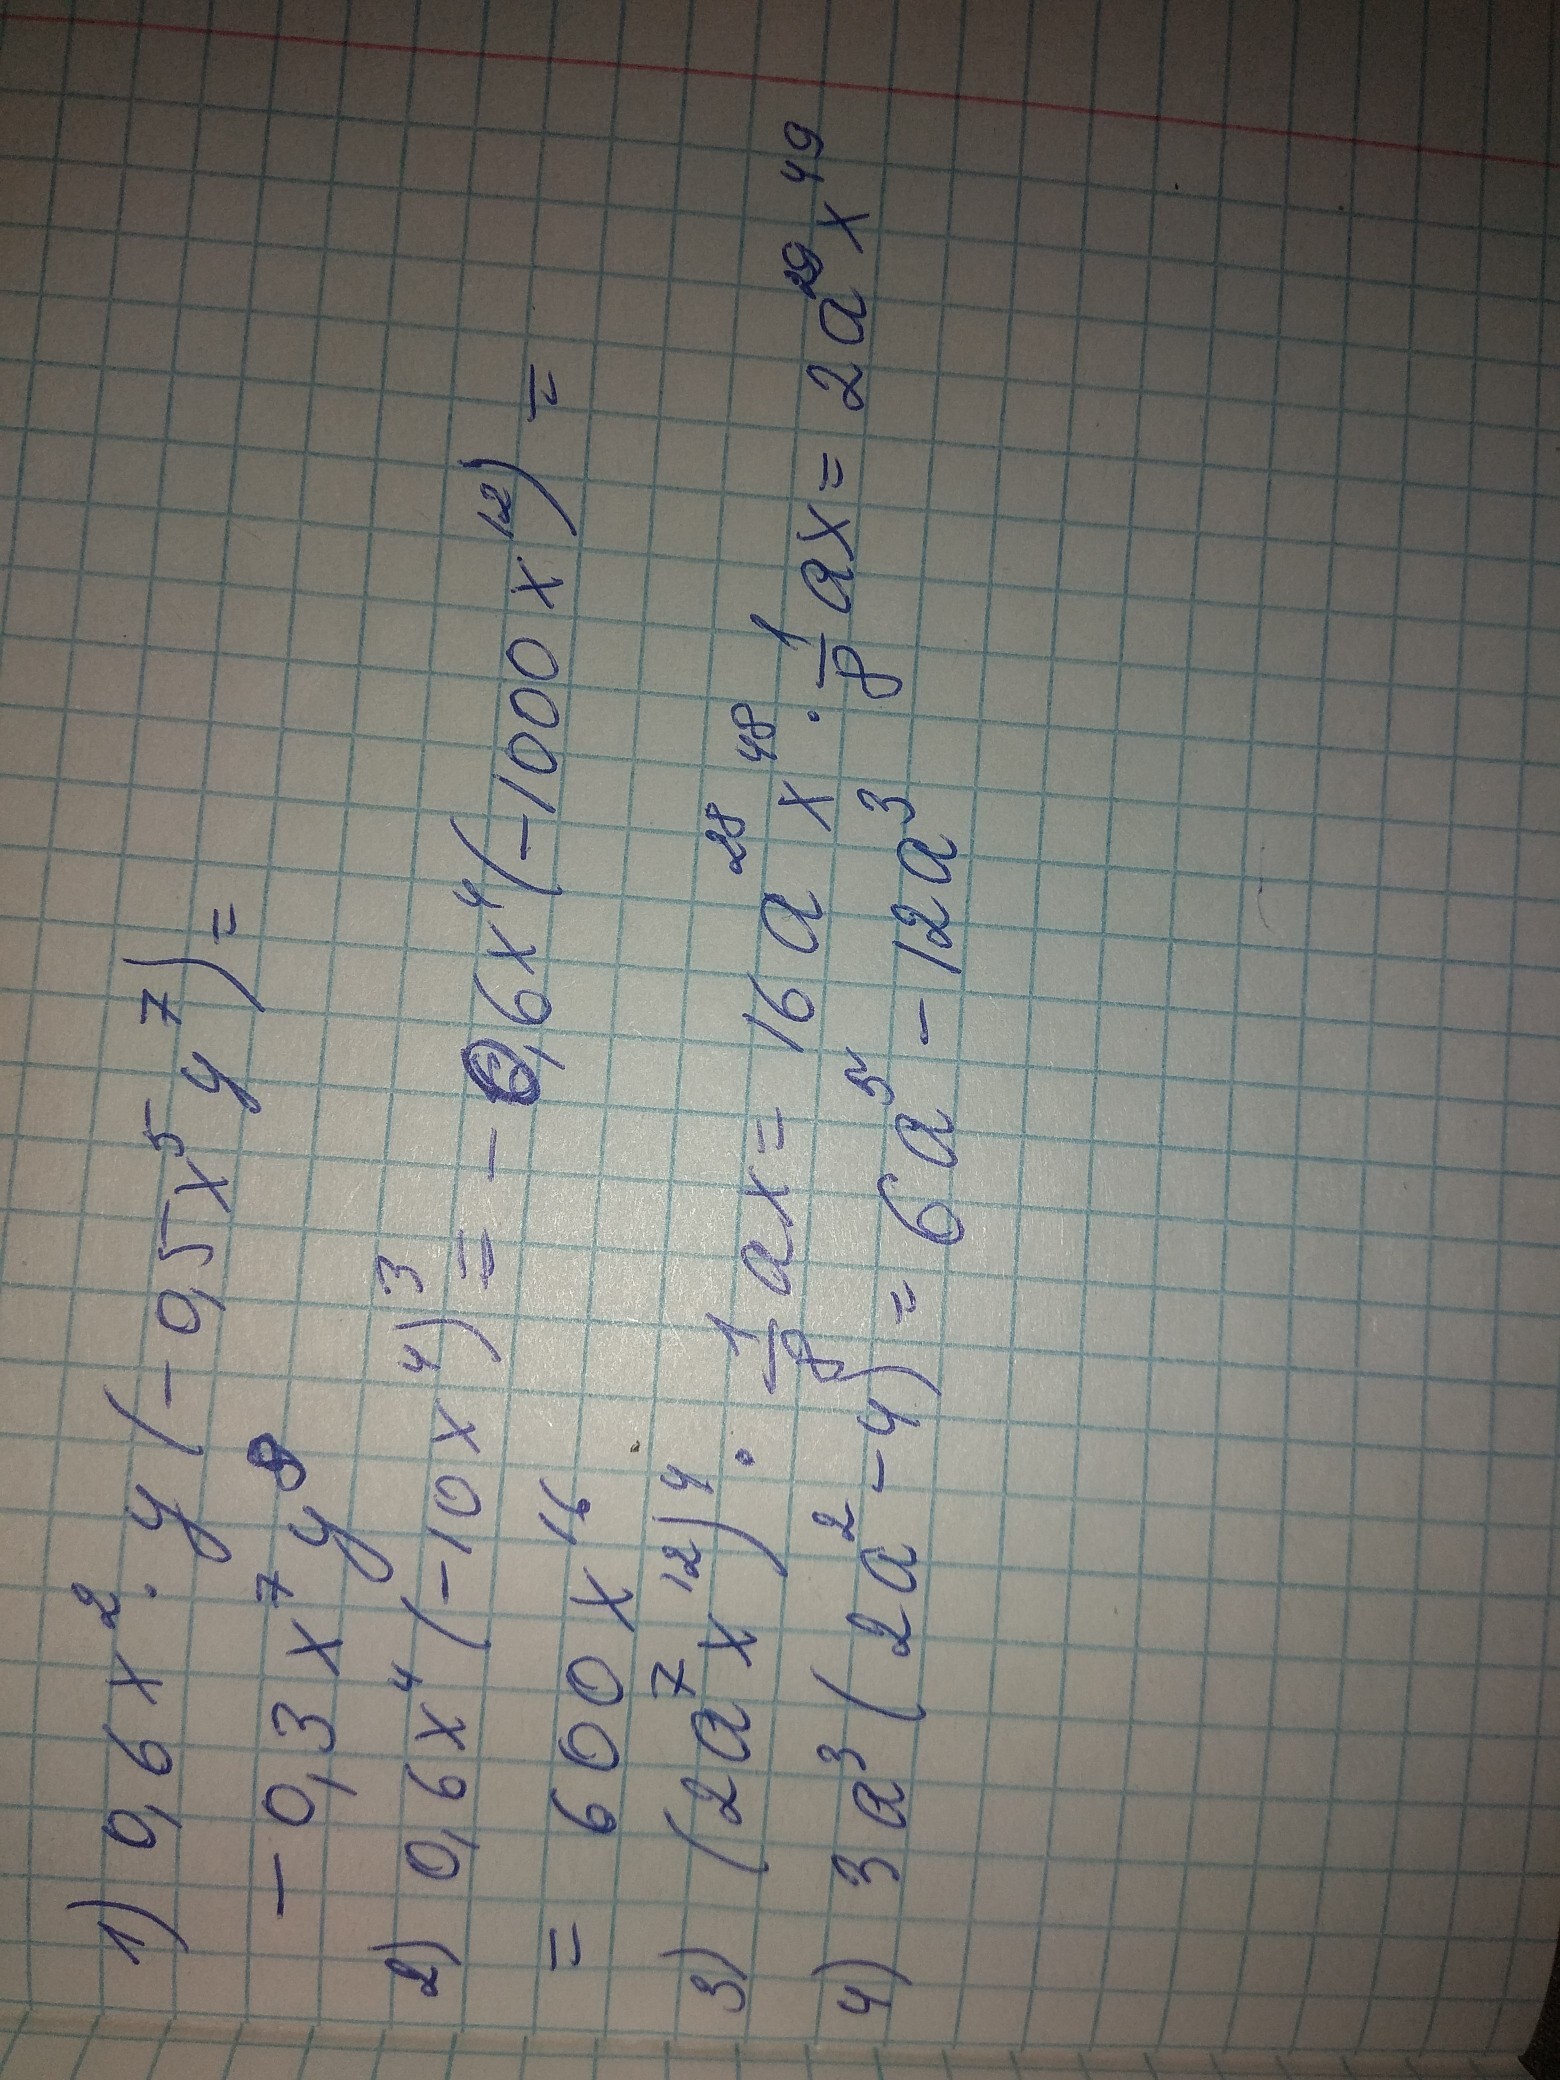 1) 0,6x²·y(-0,5x⁵y⁷)=
-0,3x⁷y⁸
2) 0,6x⁴(-10x⁴)³ = -0,6x⁴(-1000x¹²) =
= 600x¹⁶
3) (2a⁷x¹²)⁴·1/8ax= 16a²⁸x⁴⁸·1/8ax= 2a²⁹x⁴⁹
4) 3a³(2a²-4)= 6a⁵-12a³